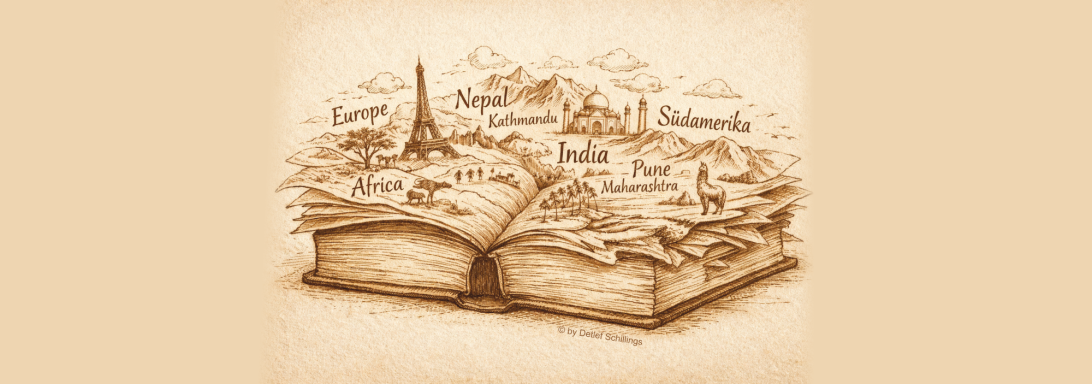 Europe
Nepal
Kathmandu
Südamerika
India
Pune
Maharashtra
Africa
© by Detlef Schillings